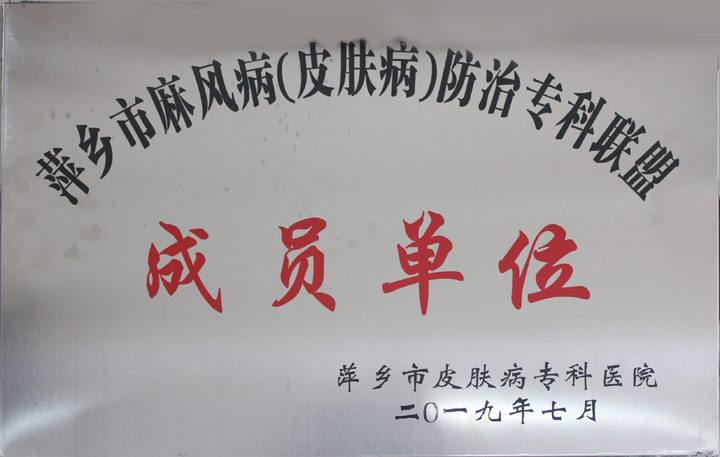 萍乡市麻风病(皮肤病)防治专科联盟
成员单位
萍乡市皮肤病专科医院
二〇一九年七月